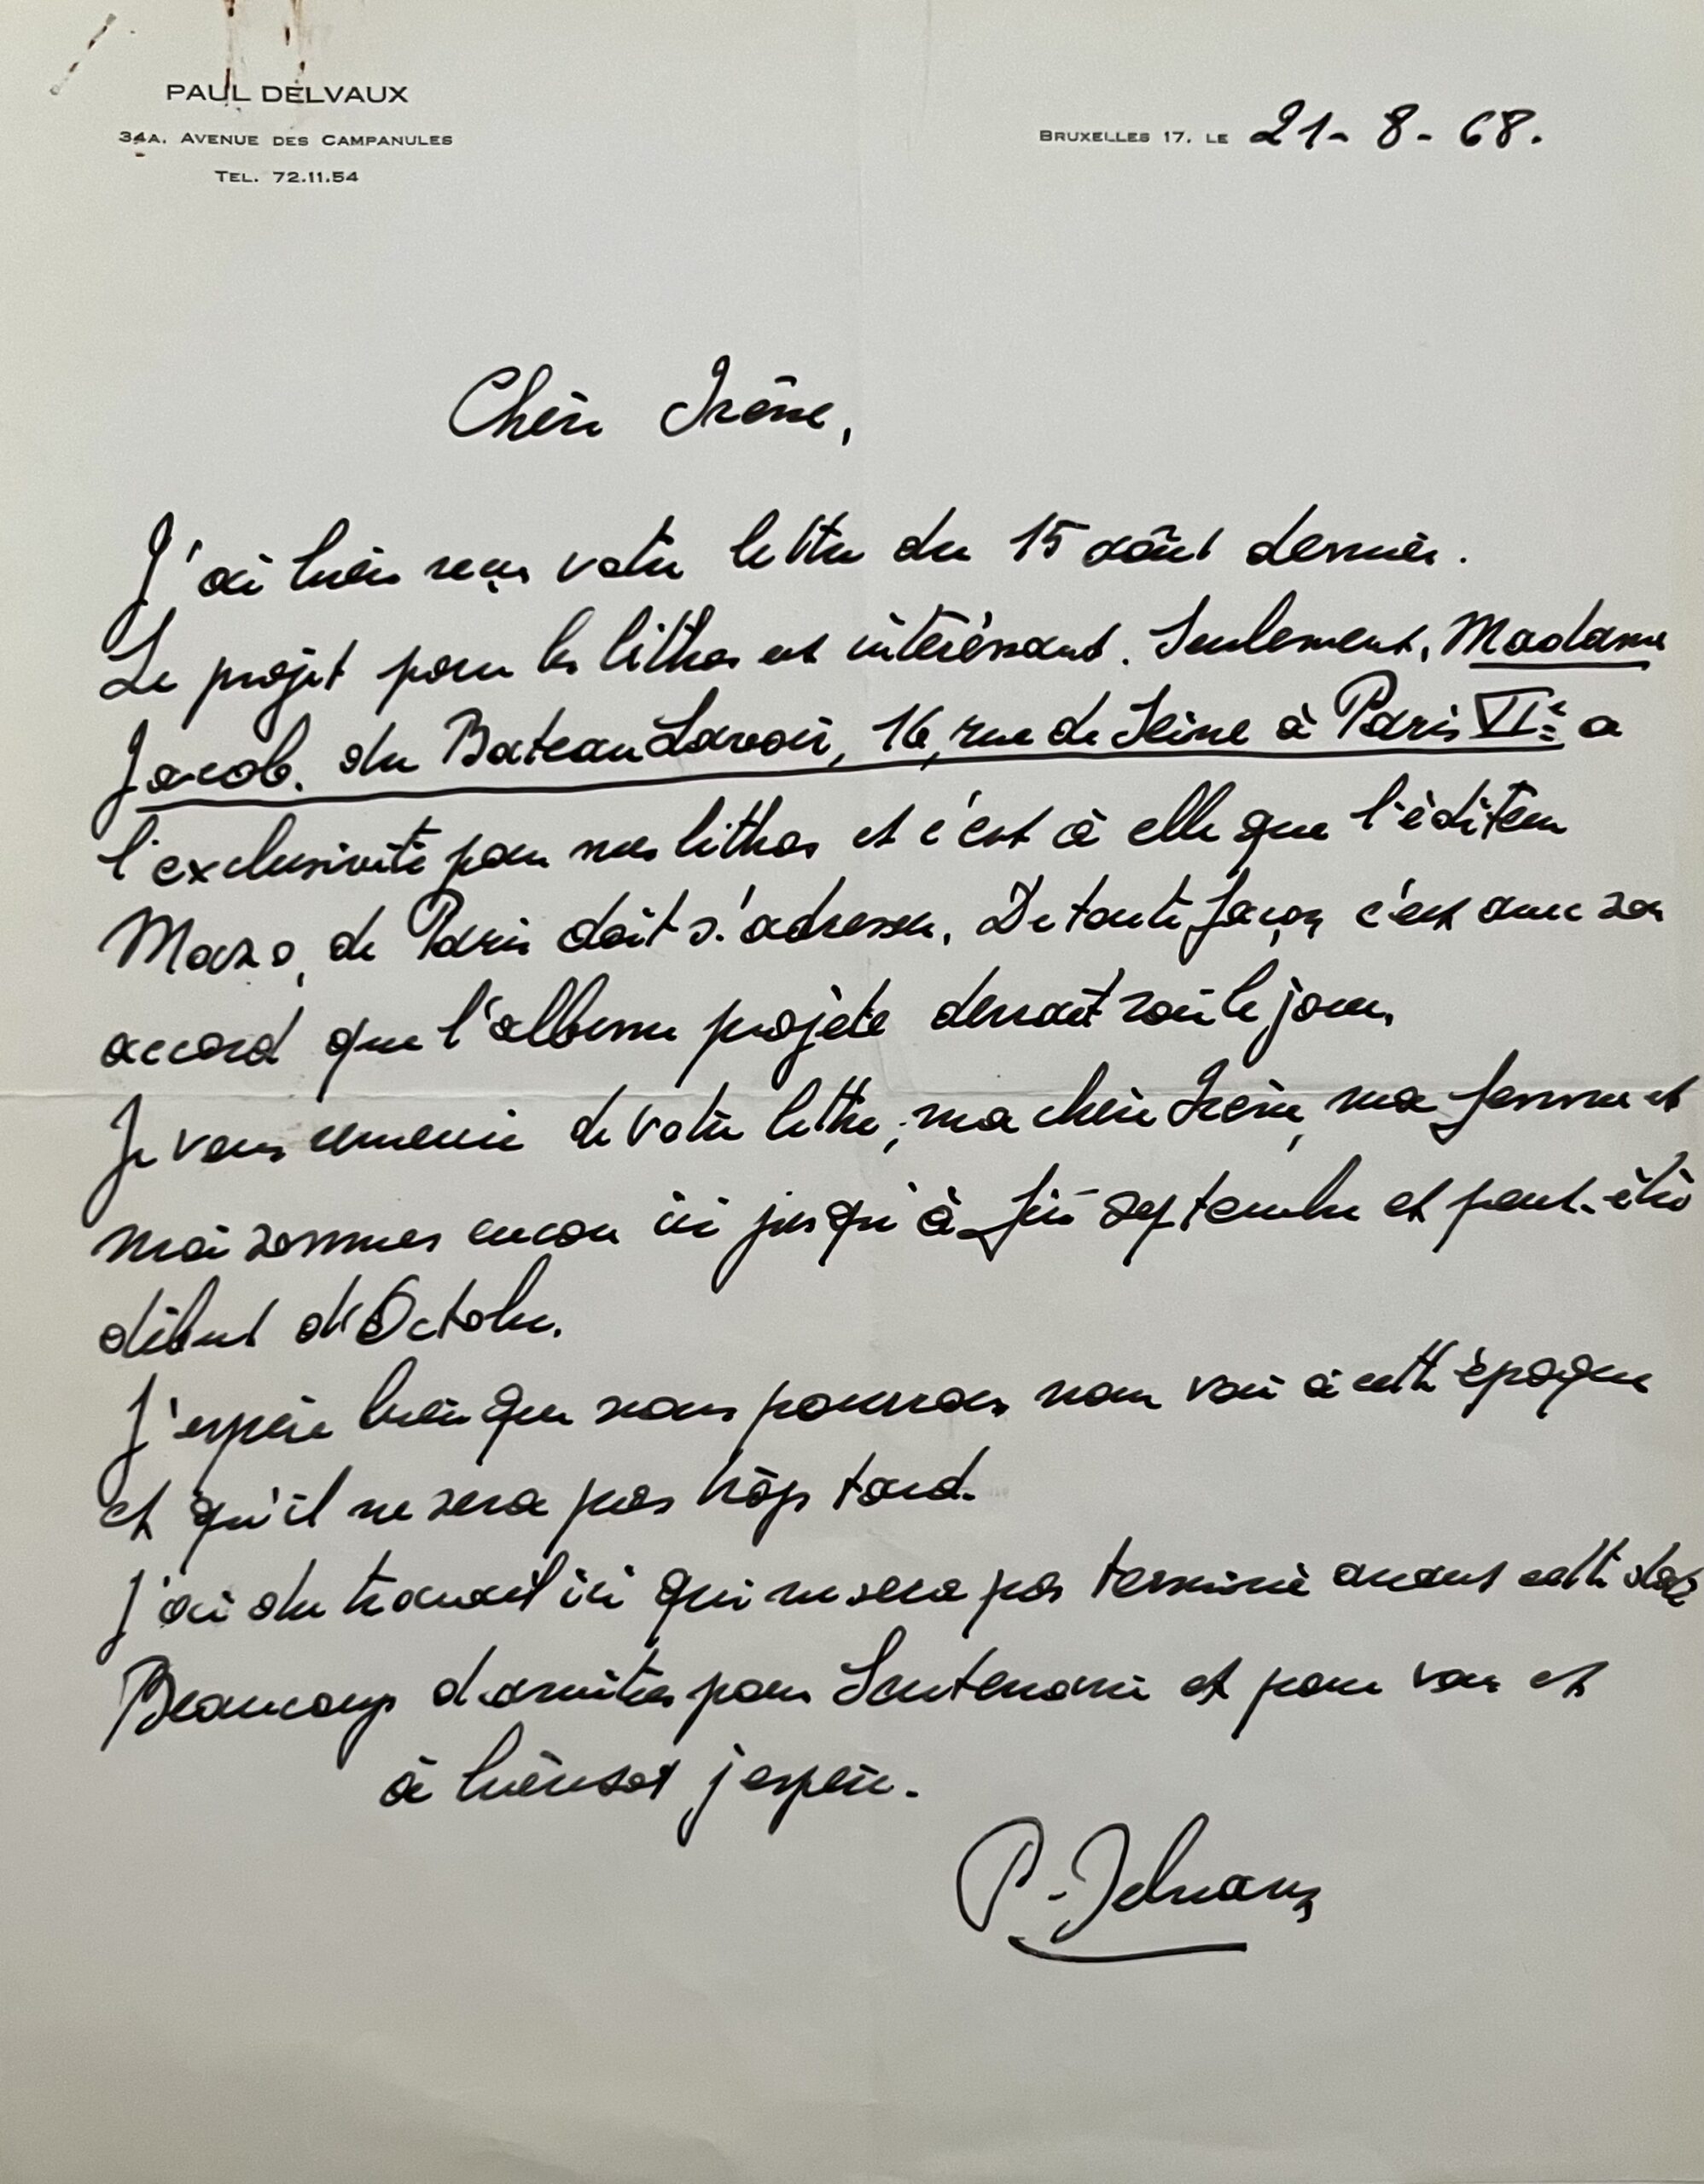 PAUL DELVAUX
34A. AVENUE DES CAMPANULES
TEL. 72.11.54
BRUXELLES 17. LE 21-8-68.
Chère Irène,
J'ai bien reçu votre lettre du 15 août dernier.
Le projet pour les lithos est intérèssant. Seulement, Madame
Jacob. du Bateau Lavoir, 16, rue de Seine à Paris VIe a
l'exclusivité pour mes lithos et c'est à elle que l'éditeur
Mazo, de Paris doit s'adresser. De toute façon c'est avec son
accord que l'album projeté devrait voir le jour.
Je vous remercie de votre lettre, ma chère Irène, ma femme et
moi sommes encore ici jusqu'à fin septembre et peut-être
début d'Octobre.
J'espère bien que nous pourrons nous voir à cette époque
et qu'il ne sera pas trop tard.
J'ai du travail ici qui ne sera pas terminé avant cette date
Beaucoup d'amitiés pour et pour vous et
à bientôt j'espère.
P. Delvaux